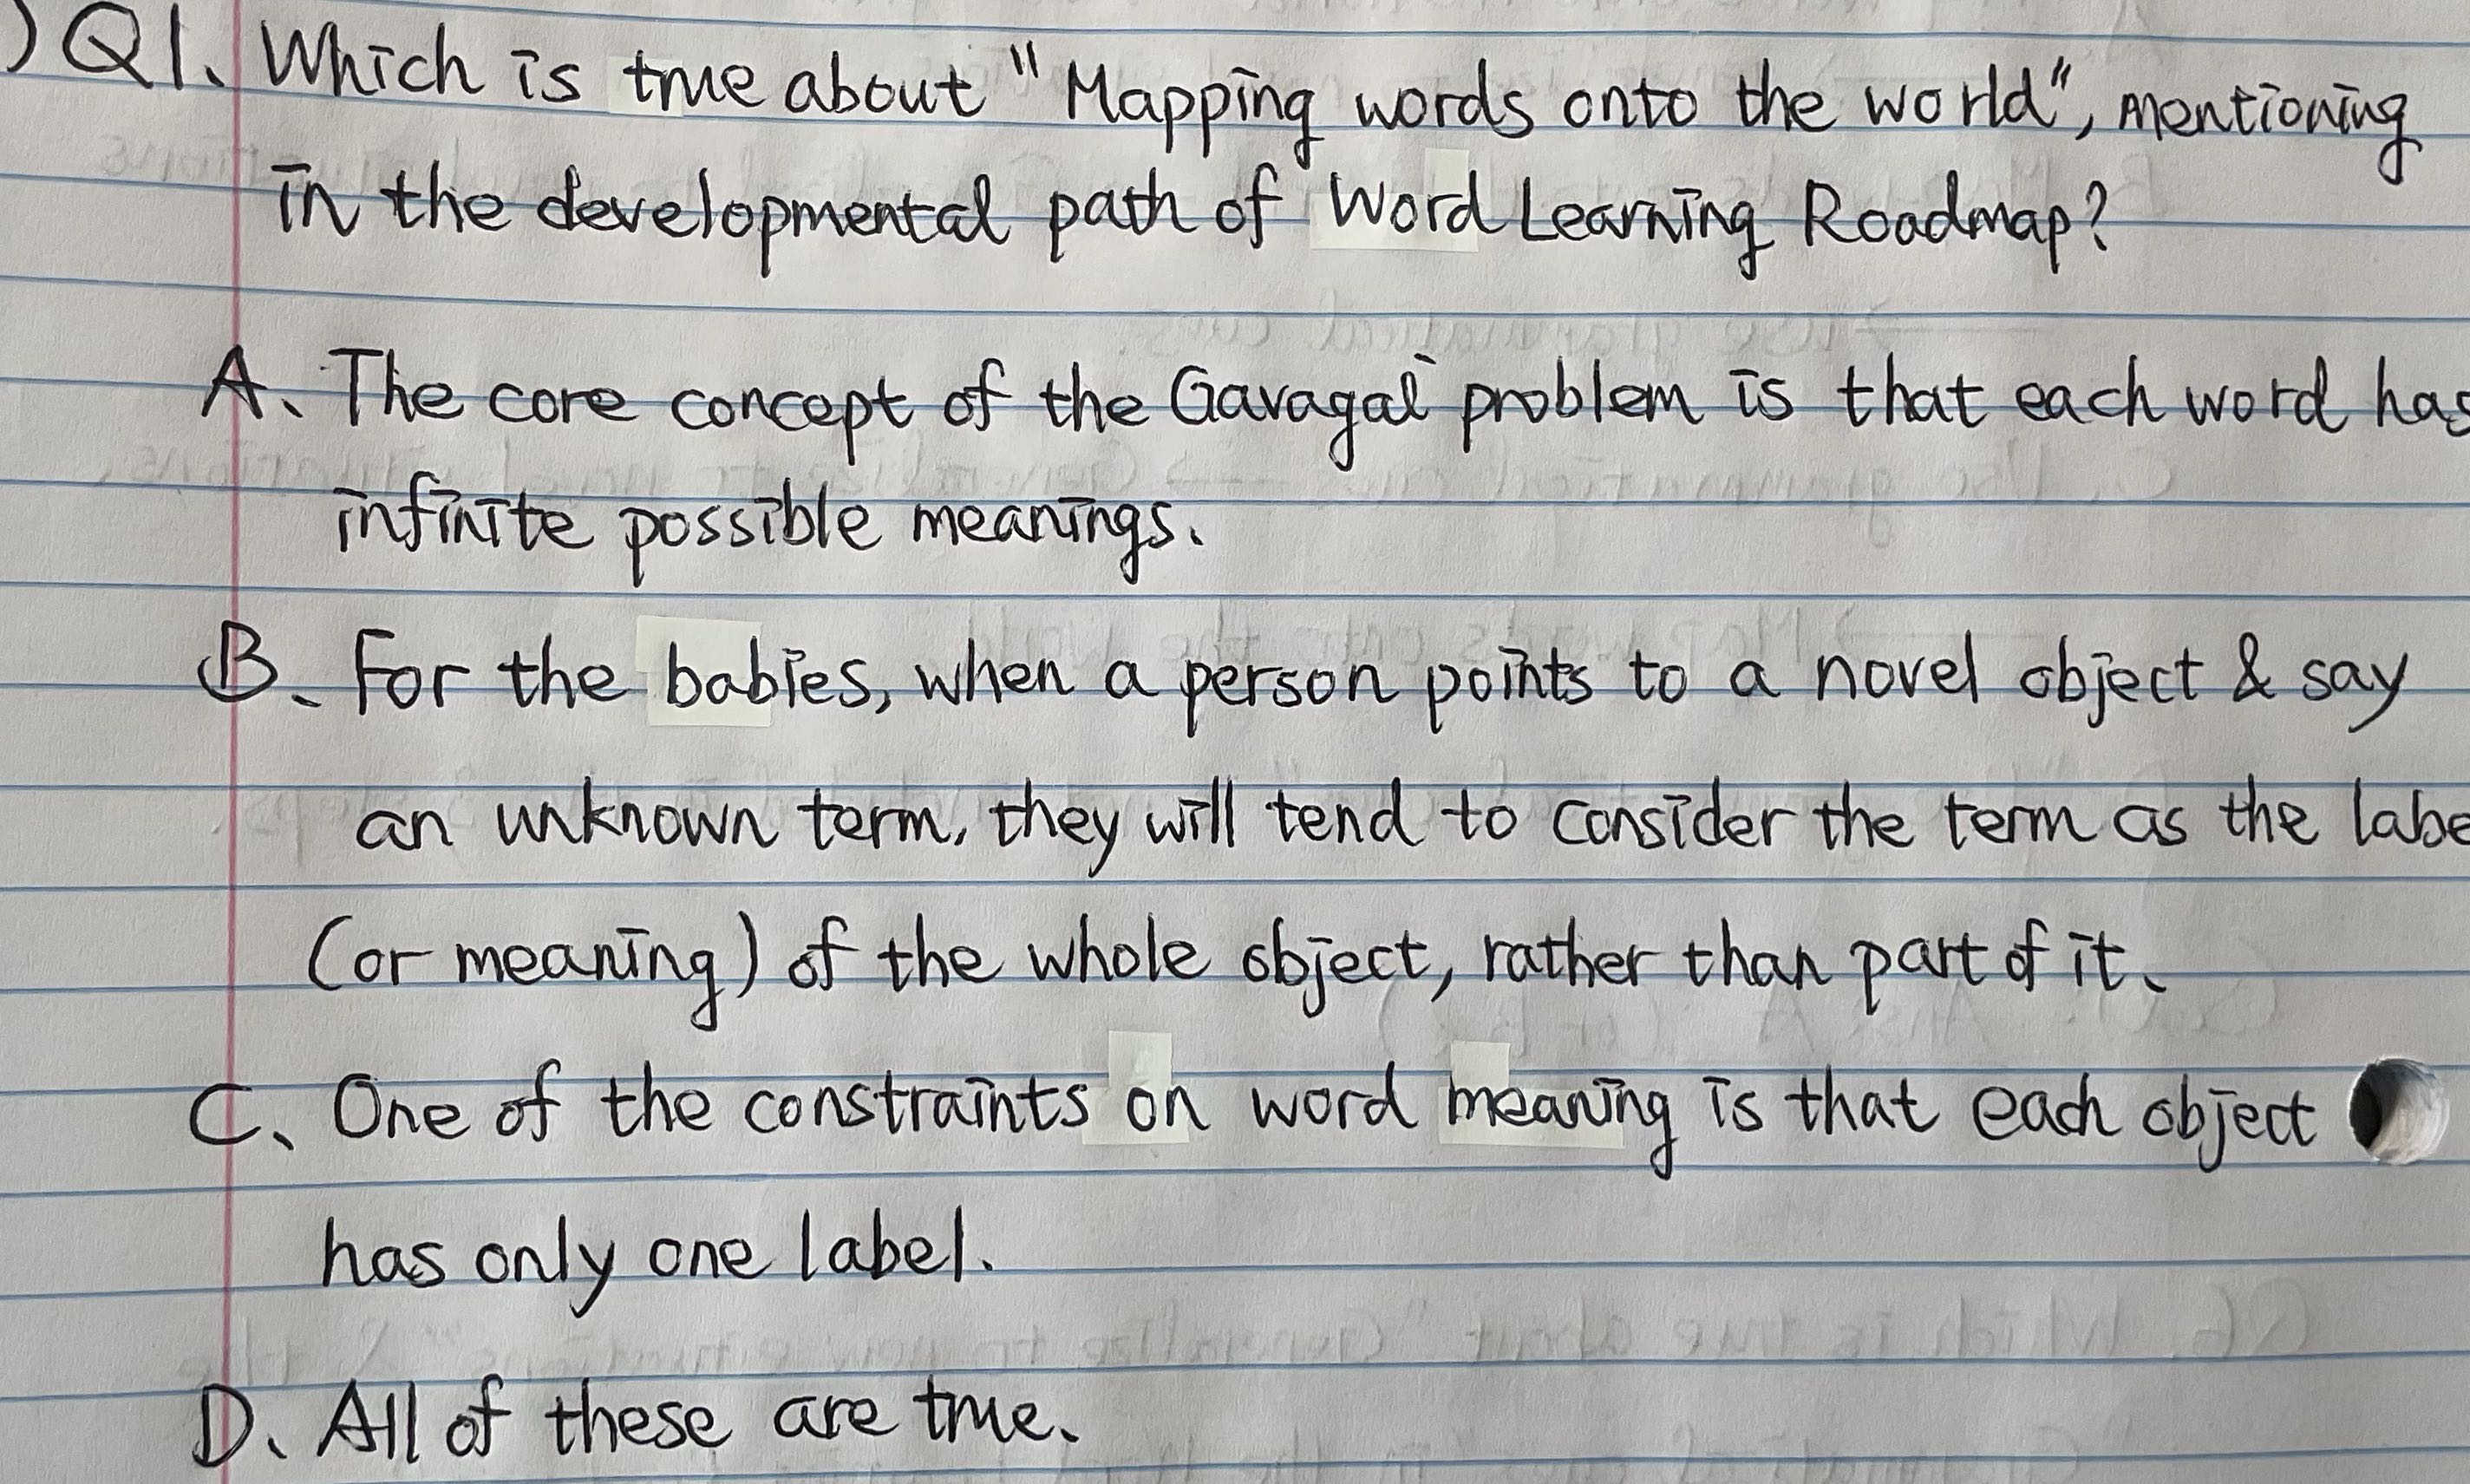 )Q1. Which is true about "Mapping words onto the world", mentioning
in the developmental path of Word Learning Roadmap?
A. The core concept of the Gavagai problem is that each word has
infinite possible meanings.
B. For the babies, when a person points to a novel object & say
an unknown term, they will tend to consider the term as the labe
(or meaning) of the whole object, rather than part of it.
C. One of the constraints on word meaning is that each object
has only one label.
D. All of these are true.